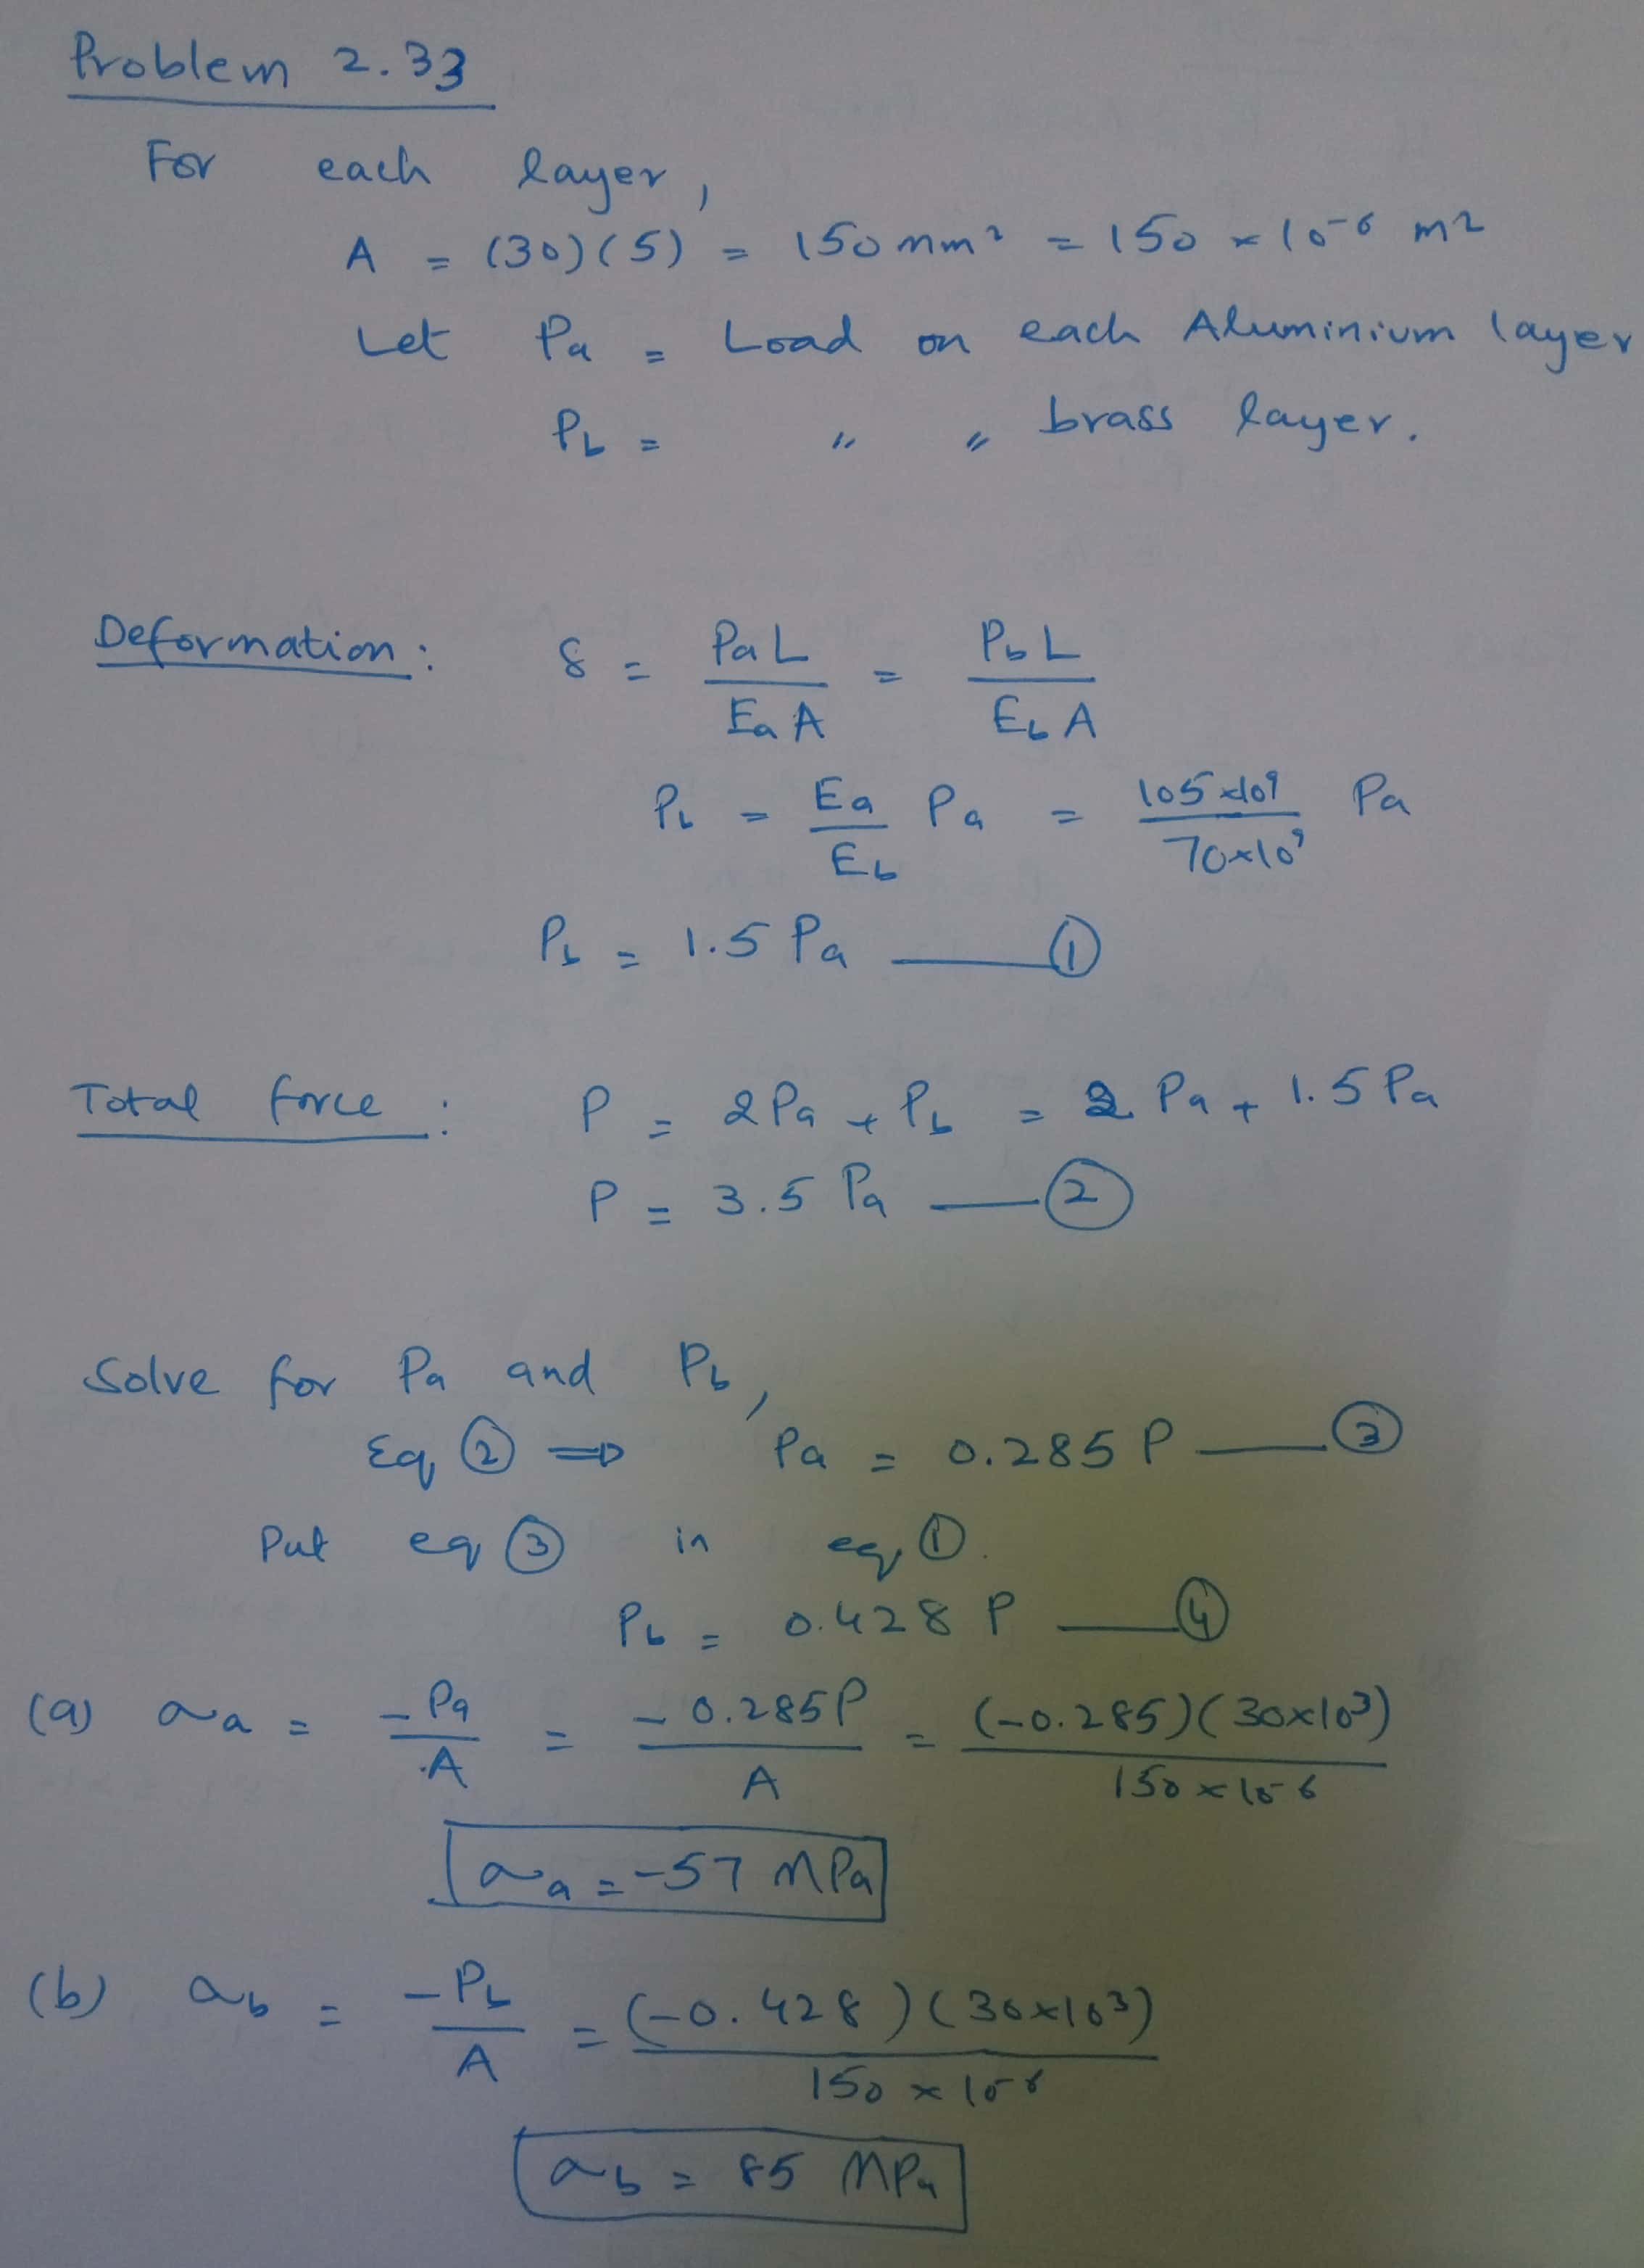 Problem 2.33
For each layer,
A = (30)(5) = 150 mm² = 150 × 10⁻⁶ m²
Let Pa = Load on each Aluminium layer
Pb = " " brass layer.
Deformation: δ = PaL/EaA = PbL/EbA
Pb = Ea/Eb Pa = 105×10⁹/70×10⁹ Pa
Pb = 1.5 Pa —— ①
Total force : P = 2Pa + Pb = 2 Pa + 1.5 Pa
P = 3.5 Pa —— ②
Solve for Pa and Pb,
Eq ② ⇒ Pa = 0.285 P —— ③
Put eq ③ in eq ①.
Pb = 0.428 P —— ④
(a) σa = -Pa/A = -0.285P/A = (-0.285)(30×10³)/150×10⁻⁶
σa = -57 MPa
(b) σb = -Pb/A = (-0.428)(30×10³)/150×10⁻⁶
σb = 85 MPa